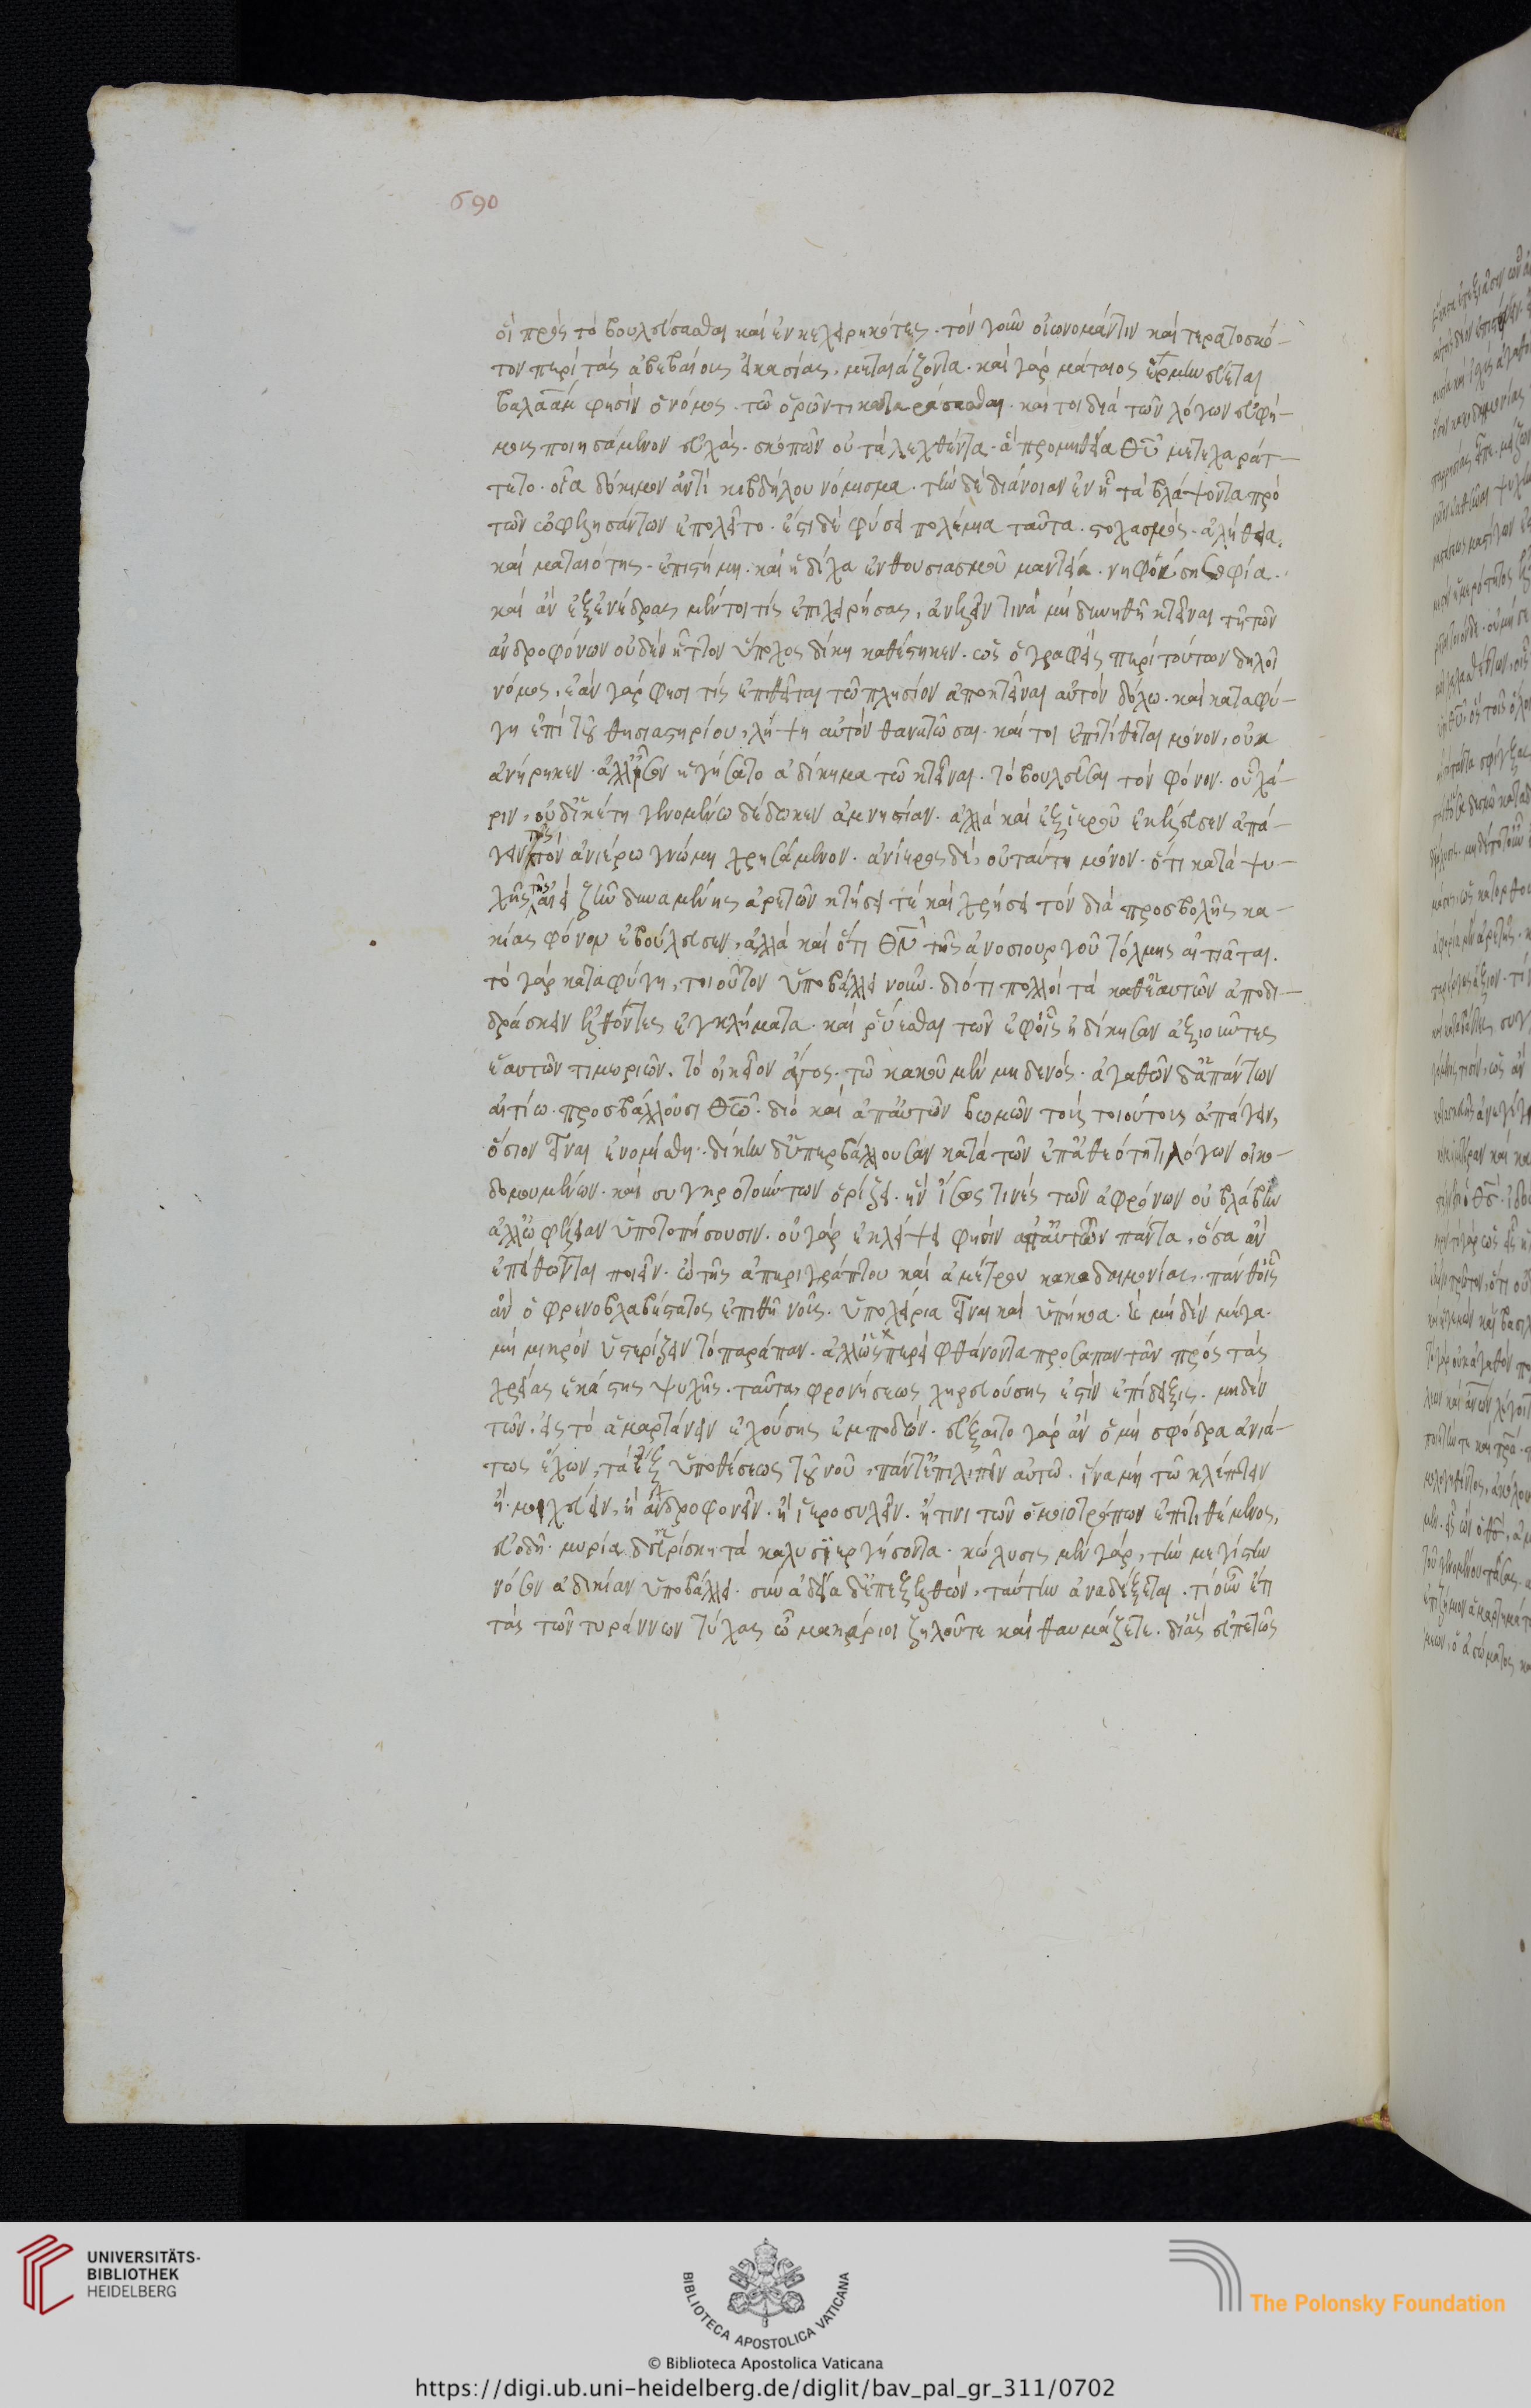 690
οἱ πρὸς τὸ βουλεύσασθαι καὶ ἐνκεχειρηκότες. τὸν γοῦν οἰωνομάντιν καὶ τερατοσκό-
πον περὶ τὰς ἀβεβαίοις εἰκασίας, ματαιάζοντα. καὶ γὰρ μάταιος ἑρμηνεύεται
βαλαάμ φησὶν ὁ νόμος. τῶ ὁρῶντι καταράσασθαι. καίτοι διὰ τῶν λόγων εὐφή-
μοις ποιησάμενον εὐχάς. σκοπῶν οὐ τὰ λεχθέντα. ἃ προμηθεία θῦ μετεχαράτ-
τετο. οἷα δόκιμον ἀντὶ κιβδήλου νόμισμα. τὴν δὲ διάνοιαν ἐν ᾗ τὰ βλάψοντα πρὸ
τῶν ὠφελησάντων ἐπολεῖτο. ἔστι δὲ φύσει πολέμια ταῦτα. στοχασμὸς. ἀλήθεια.
καὶ ματαιότης. ἐπιστήμη. καὶ ἡ δίχα ἐνθουσιασμοῦ μαντεία. σοφία.
καὶ ἂν ἐξενέδρας μέντοι τίς ἐπιχειρήσας, ἀνελεῖν τινὰ μὴ δυνηθῇ κτεῖναι τῆ τῶν
ἀνδροφόνων οὐδὲν ἧττον ὕποχος δίκη καθέστηκεν. ὡς ὁ γραφεὶς περὶ τούτων δηλοῖ
νόμος, ἐὰν γάρ φησι τίς ἐπιθεῖται τῶ πλησίον ἀποκτεῖναι αὐτὸν δόλω. καὶ καταφύ-
γη ἐπὶ τοῦ θυσιαστηρίου, λήψη αὐτὸν θανατῶσαι. καίτοι ἐπιτίθεται μόνον, οὐκ
ἀνήρηκεν. ἀλλ' ἴσον ἡγήσατο ἀδίκημα τῶ κτεῖναι. τὸ βουλεῦσαι τὸν φόνον. οὗ χά-
ριν, οὐδ' ἱκέτη γενομένω δέδωκεν ἀμνηστίαν. ἀλλὰ καὶ ἐξ ἱεροῦ ἐκέλευσεν ἀπά-
γειν τὸν ἀνιέρω γνώμη χρησάμενον. ἀνίερος δὲ, οὐ ταύτη μόνον. ὅτι κατὰ ψυ-
χῆς τῆς ἀεὶ ζῆν δυναμένης ἀρετῶν κτήσει τὲ καὶ χρήσει τὸν διὰ προσβολῆς κα-
κίας φόνον ἐβούλευσεν, ἀλλὰ καὶ ὅτι θν τῆς ἀνοσιουργοῦ τόλμης αἰτιᾶται.
τὸ γὰρ καταφύγη, τοιοῦτον ὑποβάλλει νοῦν. διότι πολλοὶ τὰ καθ' ἑαυτῶν ἀποδι-
δράσκειν ἐθέλοντες ἐγκλήματα. καὶ ῥύεσθαι τῶν ἐφ' οἷς ἠδίκησαν ἀξιοῦντες
ἑαυτῶν τιμωριῶν. τὸ οἰκεῖον ἄγος. τῶ κακοῦ μὲν μηδενὸς. ἀγαθῶν δ' ἁπάντων
αἰτίω. προσβάλλουσι θω. διὸ καὶ ἀπ' αὐτῶν βωμῶν τοὺς τοιούτοις ἀπάγειν,
ὅσιον εἶναι ἐνομίσθη. δίκην δ' ὑπερβάλλουσαν κατὰ τῶν ἐπ' ἀθεότητι λόγων οἰκο-
δομουμένων. καὶ συγκροτούντων ὁρίζει. ἣν ἴσως τινὲς τῶν ἀφρόνων οὐ βλάβην
ἀλλ' ὠφέλειαν ὑποτοπήσουσιν. οὐ γὰρ ἐκλείψει φησὶν ἀπ' αὐτῶν πάντα, ὅσα ἂν
ἐπιθῶνται ποιεῖν. ὢ τῆς ἀπεριγράπτου καὶ ἀμέτρου κακοδαιμονίας. πάνθ' οἷς
ἂν ὁ φρενοβλαβέστατος ἐπιθῆ νοῦς. ὑποχείρια εἶναι καὶ ὑπήκοα. καὶ μηδὲν μέγα.
μὴ μικρὸν ὑστερίζειν τὸ παράπαν. ἀλλ' ὥσπερεὶ φθάνοντα προσαπαντᾶν πρὸς τὰς
χρείας ἑκάστης ψυχῆς. ταῦτα, φρονήσεως χηρευούσης ἐστὶν ἐπίδειξις. μηδὲν
τῶν. εἰς τὸ ἁμαρτάνειν ἐχούσης ἐμποδών. εὔξαιτο γὰρ ἂν ὁ μὴ σφόδρα ἀνιά-
τως ἔχων, τὰ ἐξ ὑποθέσεως τοῦ νοῦ, πάντ' ἐπιλιπεῖν αὐτῶ. ἵνα μὴ τῶ κλέπτειν
ἢ. μοιχεύειν, ἢ ἀνδροφονεῖν. ἢ ἱεροσυλεῖν. ἤ τινι τῶν ὁμοιοτρόπων ἐπιτιθέμενος,
εὐοδῆ. μυρία δ' εὑρίσκη τὰ κωλυσιεργήσοντα. κώλυσις μὲν γὰρ, τὴν μεγίστην
νόσον ἀδικίαν ὑποβάλλει. σὺν ἀδεία δ' ἐπεξελθὼν, ταύτην ἀναδέξεται. τί οὖν ἔτι
τὰς τῶν τυράννων τύχας ὦ μακάριοι ζηλοῦτε καὶ θαυμάζετε. δι' ἃς εὐπετῶς
UNIVERSITÄTS-
BIBLIOTHEK
HEIDELBERG
BIBLIOTECA APOSTOLICA VATICANA
The Polonsky Foundation
© Biblioteca Apostolica Vaticana
https://digi.ub.uni-heidelberg.de/diglit/bav_pal_gr_311/0702